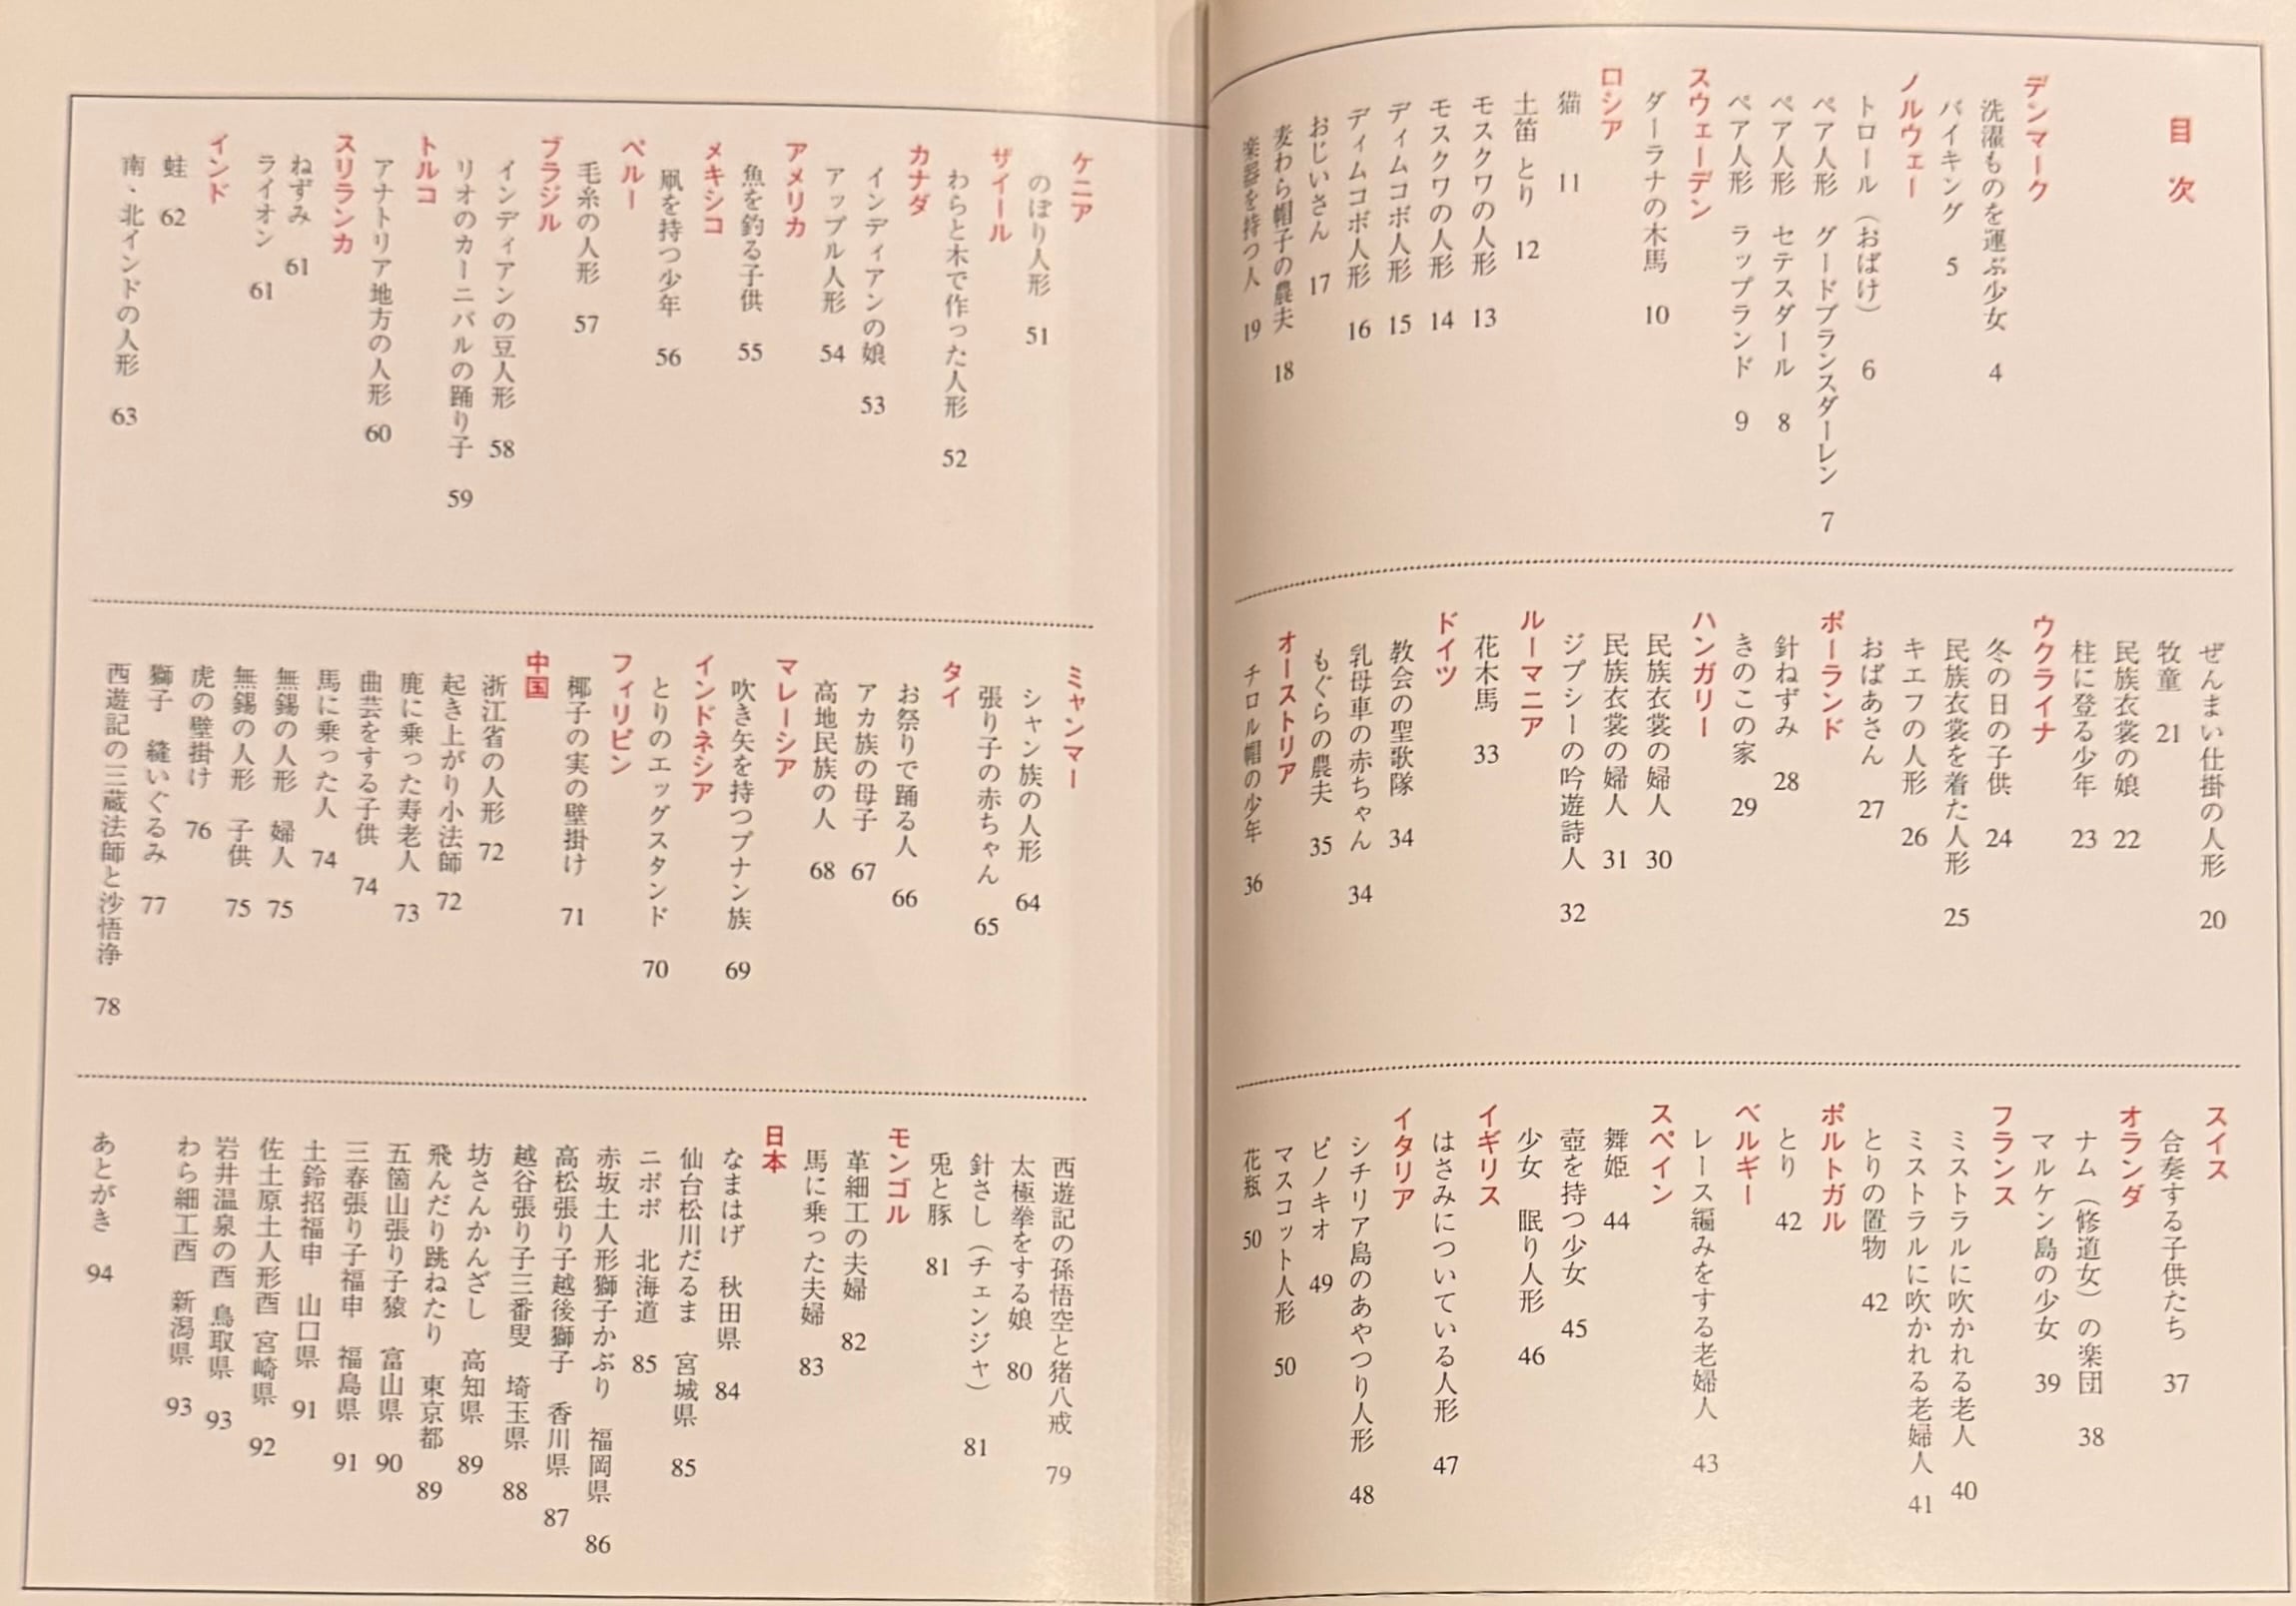 目次
デンマーク
洗濯ものを運ぶ少女 4
バイキング 5
ノルウェー
トロール（おばけ） 6
ペア人形 グードブランスダーレン 7
ペア人形 セテスダール 8
ペア人形 ラップランド 9
スウェーデン
ダーラナの木馬 10
ロシア
猫 11
土笛 とり 12
モスクワの人形 13
モスクワの人形 14
ディムコボ人形 15
ディムコボ人形 16
おじいさん 17
麦わら帽子の農夫 18
楽器を持つ人 19
ぜんまい仕掛の人形 20
牧童 21
民族衣裳の娘 22
柱に登る少年 23
ウクライナ
冬の日の子供 24
民族衣裳を着た人形 25
キエフの人形 26
おばあさん 27
ポーランド
針ねずみ 28
きのこの家 29
ハンガリー
民族衣裳の婦人 30
民族衣裳の婦人 31
ジプシーの吟遊詩人 32
ルーマニア
花木馬 33
ドイツ
教会の聖歌隊 34
乳母車の赤ちゃん 34
もぐらの農夫 35
オーストリア
チロル帽の少年 36
スイス
合奏する子供たち 37
オランダ
ナム（修道女）の楽団 38
マルケン島の少女 39
フランス
ミストラルに吹かれる老人 40
ミストラルに吹かれる老婦人 41
とりの置物 42
ポルトガル
とり 42
ベルギー
レース編みをする老婦人 43
スペイン
舞姫 44
壺を持つ少女 45
少女 眠り人形 46
イギリス
はさみについている人形 47
イタリア
シチリア島のあやつり人形 48
ピノキオ 49
マスコット人形 50
花瓶 50
ケニア
のぼり人形 51
ザイール
わらと木で作った人形 52
カナダ
インディアンの娘 53
アップル人形 54
アメリカ
魚を釣る子供 55
メキシコ
凧を持つ少年 56
ペルー
毛糸の人形 57
ブラジル
インディアンの豆人形 58
リオのカーニバルの踊り子 59
トルコ
アナトリア地方の人形 60
スリランカ
ねずみ 61
ライオン 61
インド
蛙 62
南・北インドの人形 63
ミャンマー
シャン族の人形 64
張り子の赤ちゃん 65
タイ
お祭りで踊る人 66
アカ族の母子 67
高地民族の人 68
マレーシア
吹き矢を持つプナン族 69
インドネシア
とりのエッグスタンド 70
フィリピン
椰子の実の壁掛け 71
中国
浙江省の人形 72
起き上がり小法師 72
鹿に乗った寿老人 73
曲芸をする子供 74
馬に乗った人 74
無錫の人形 婦人 75
無錫の人形 子供 75
虎の壁掛け 76
獅子 縫いぐるみ 77
西遊記の三蔵法師と沙悟浄 78
西遊記の孫悟空と猪八戒 79
太極拳をする娘 80
針さし（チェンジャ） 81
兎と豚 81
モンゴル
革細工の夫婦 82
馬に乗った夫婦 83
日本
なまはげ 秋田県 84
仙台松川だるま 宮城県 85
ニポポ 北海道 85
赤坂土人形獅子かぶり 福岡県 86
高松張り子越後獅子 香川県 87
越谷張り子三番叟 埼玉県 88
坊さんかんざし 高知県 89
飛んだり跳ねたり 東京都 89
五箇山張り子猿 富山県 90
三春張り子福申 福島県 91
土鈴招福申 山口県 91
佐土原土人形酉 宮崎県 92
岩井温泉の酉 鳥取県 93
わら細工酉 新潟県 93
あとがき 94